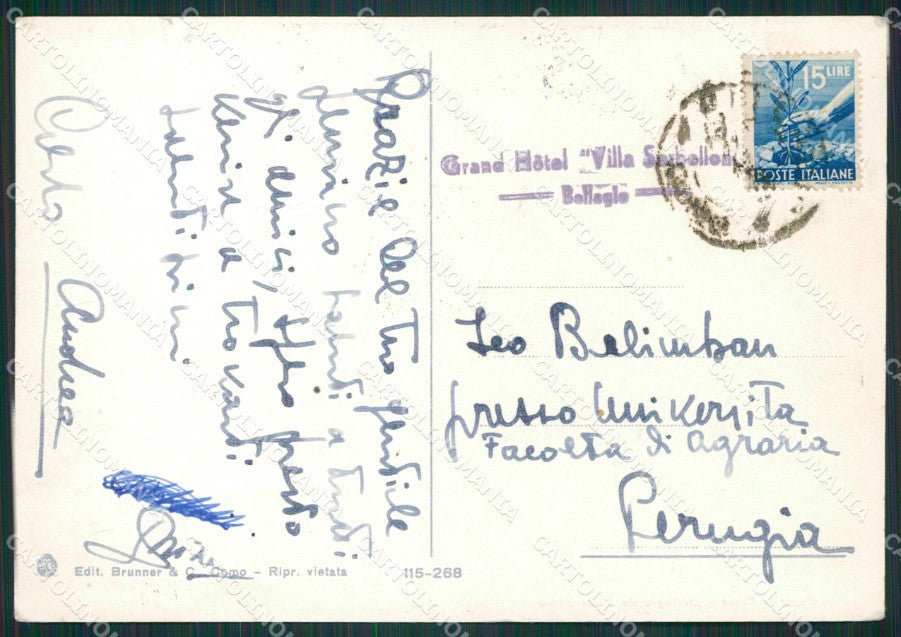 Grazie del tuo gentile
pensiero tanti a tutti
gli amici, spero presto
venir a trovarti
saluti
Andrea
15 LIRE
POSTE ITALIANE
Grand Hôtel "Villa Serbelloni"
Bellagio
Leo Balimban
presso Università
Facoltà di Agraria
Perugia
Edit. Brunner & C. Como - Ripr. vietata 115-268
CARTOLINOMANIA